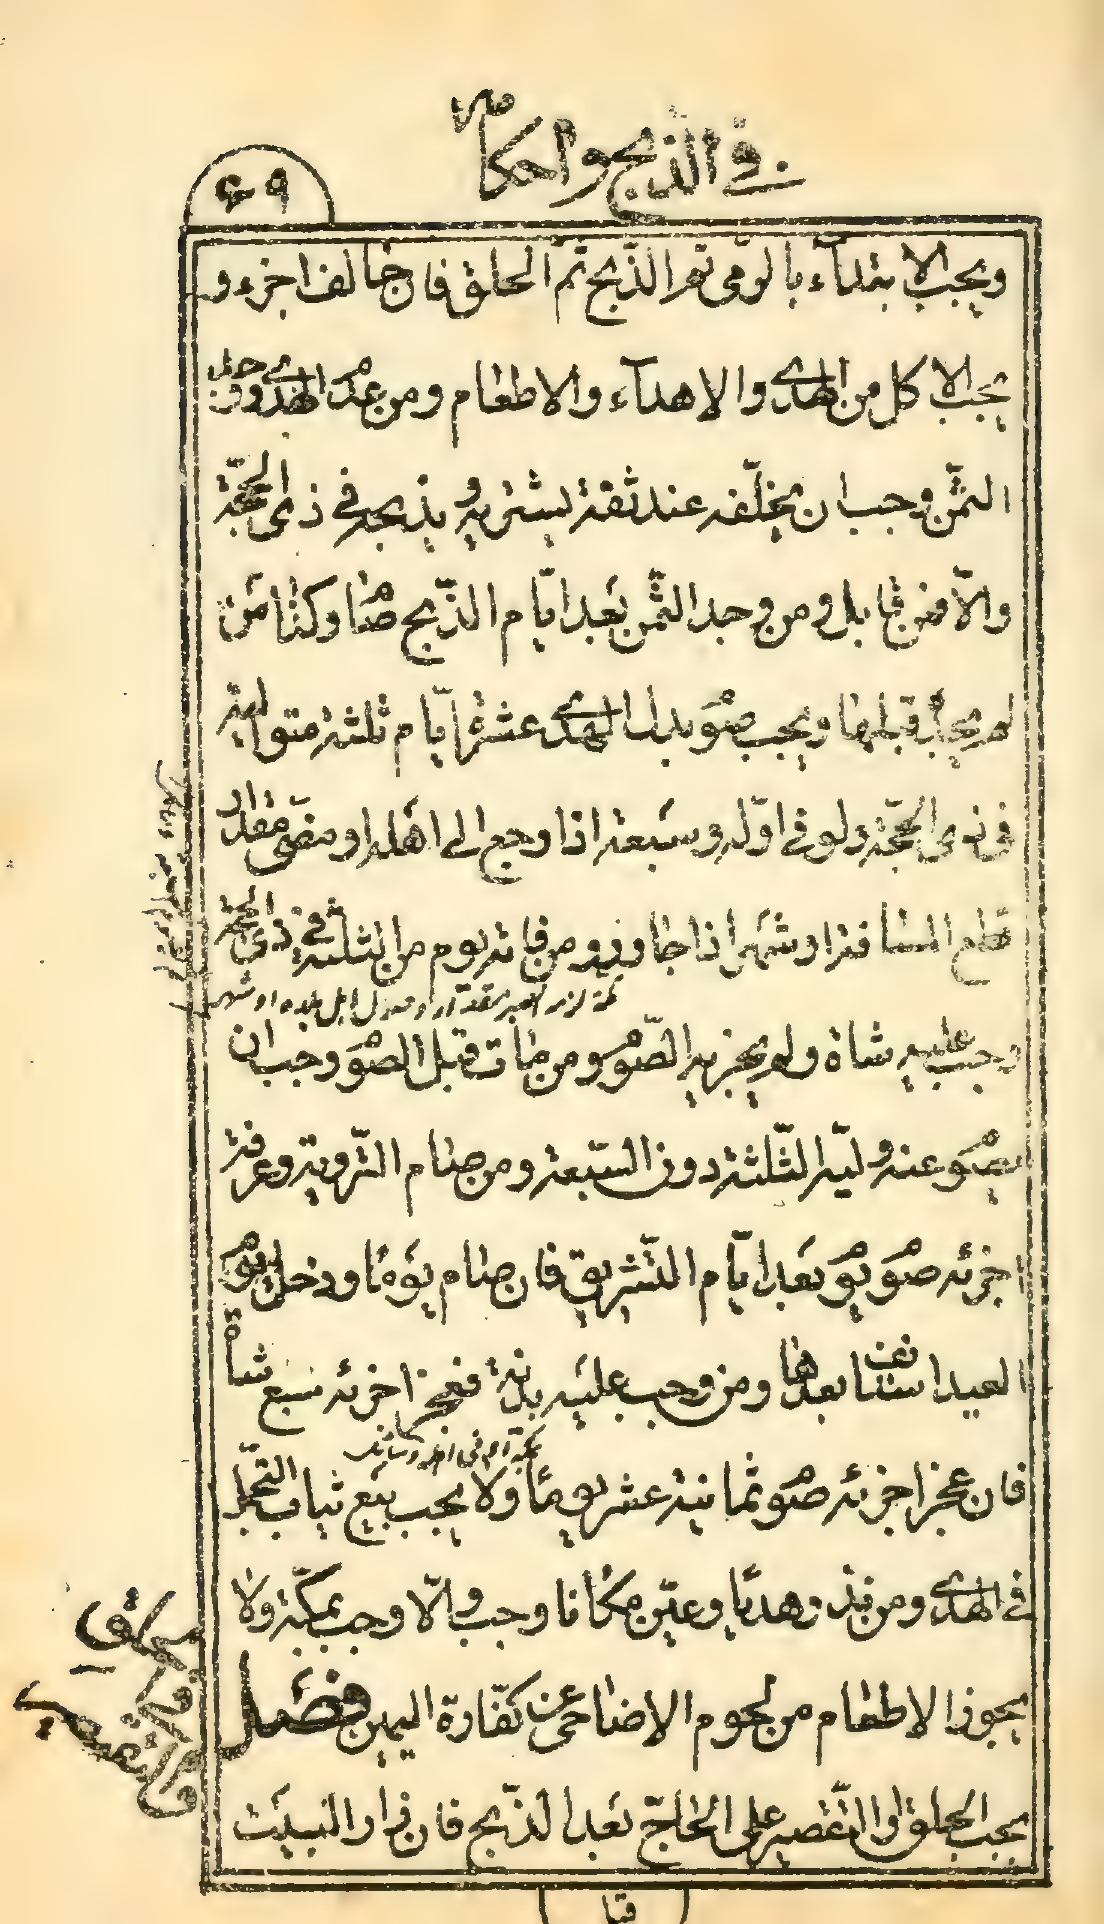 في الذبح واحكامه
۶۹
ويجب الابتداء بالرمى ثم الذبح ثم الحلق فان خالف اجزء و
يجب الاكل من الهدى والاهداء والاطعام ومن عدم الهدى ووجد
الثمن وجب ان يخلّفه عند ثقة يشتريه ويذبحه في ذى الحجّة
والّا فمن قابل ومن وجد الثمن بعد ايّام الذّبح صام وكذا من
لم يجد قبلها ويجب صوم بدل الهدى عشرة ايّام ثلثة متوالية
في ذى الحجّة ولو في اوّله وسبعة اذا رجع الى اهله او مضى مقدار
المسافة او شهر اذا جاور ومن فاته يوم من الثلثة في ذى الحجة
وجب عليه شاة ولم يجزيه الصّوم ومن مات قبل الصوم وجب ان
يصوم عنه وليّه الثّلثة دون السّبعة ومن صام التّروية وعرفة
اجزئه صوم يوم بعد ايّام التّشريق فان صام يومًا ودخل يوم
العيد استانف بعدها ومن وجب عليه بدنة فعجز اجزئه سبع شاة
فان عجز اجزئه صوم ثمانية عشر يومًا ولا يجب بيع ثياب التّجمّل
في الهدى ومن نذر هديًا وعيّن مكانا وجب والّا وجب بمكّة ولا
يجوز الاطعام من لحوم الاضاحى عن كفّارة اليمين فصل
يجب الحلق او التّقصير على الحاجّ بعد الذّبح فان زار البيت
والتقصير